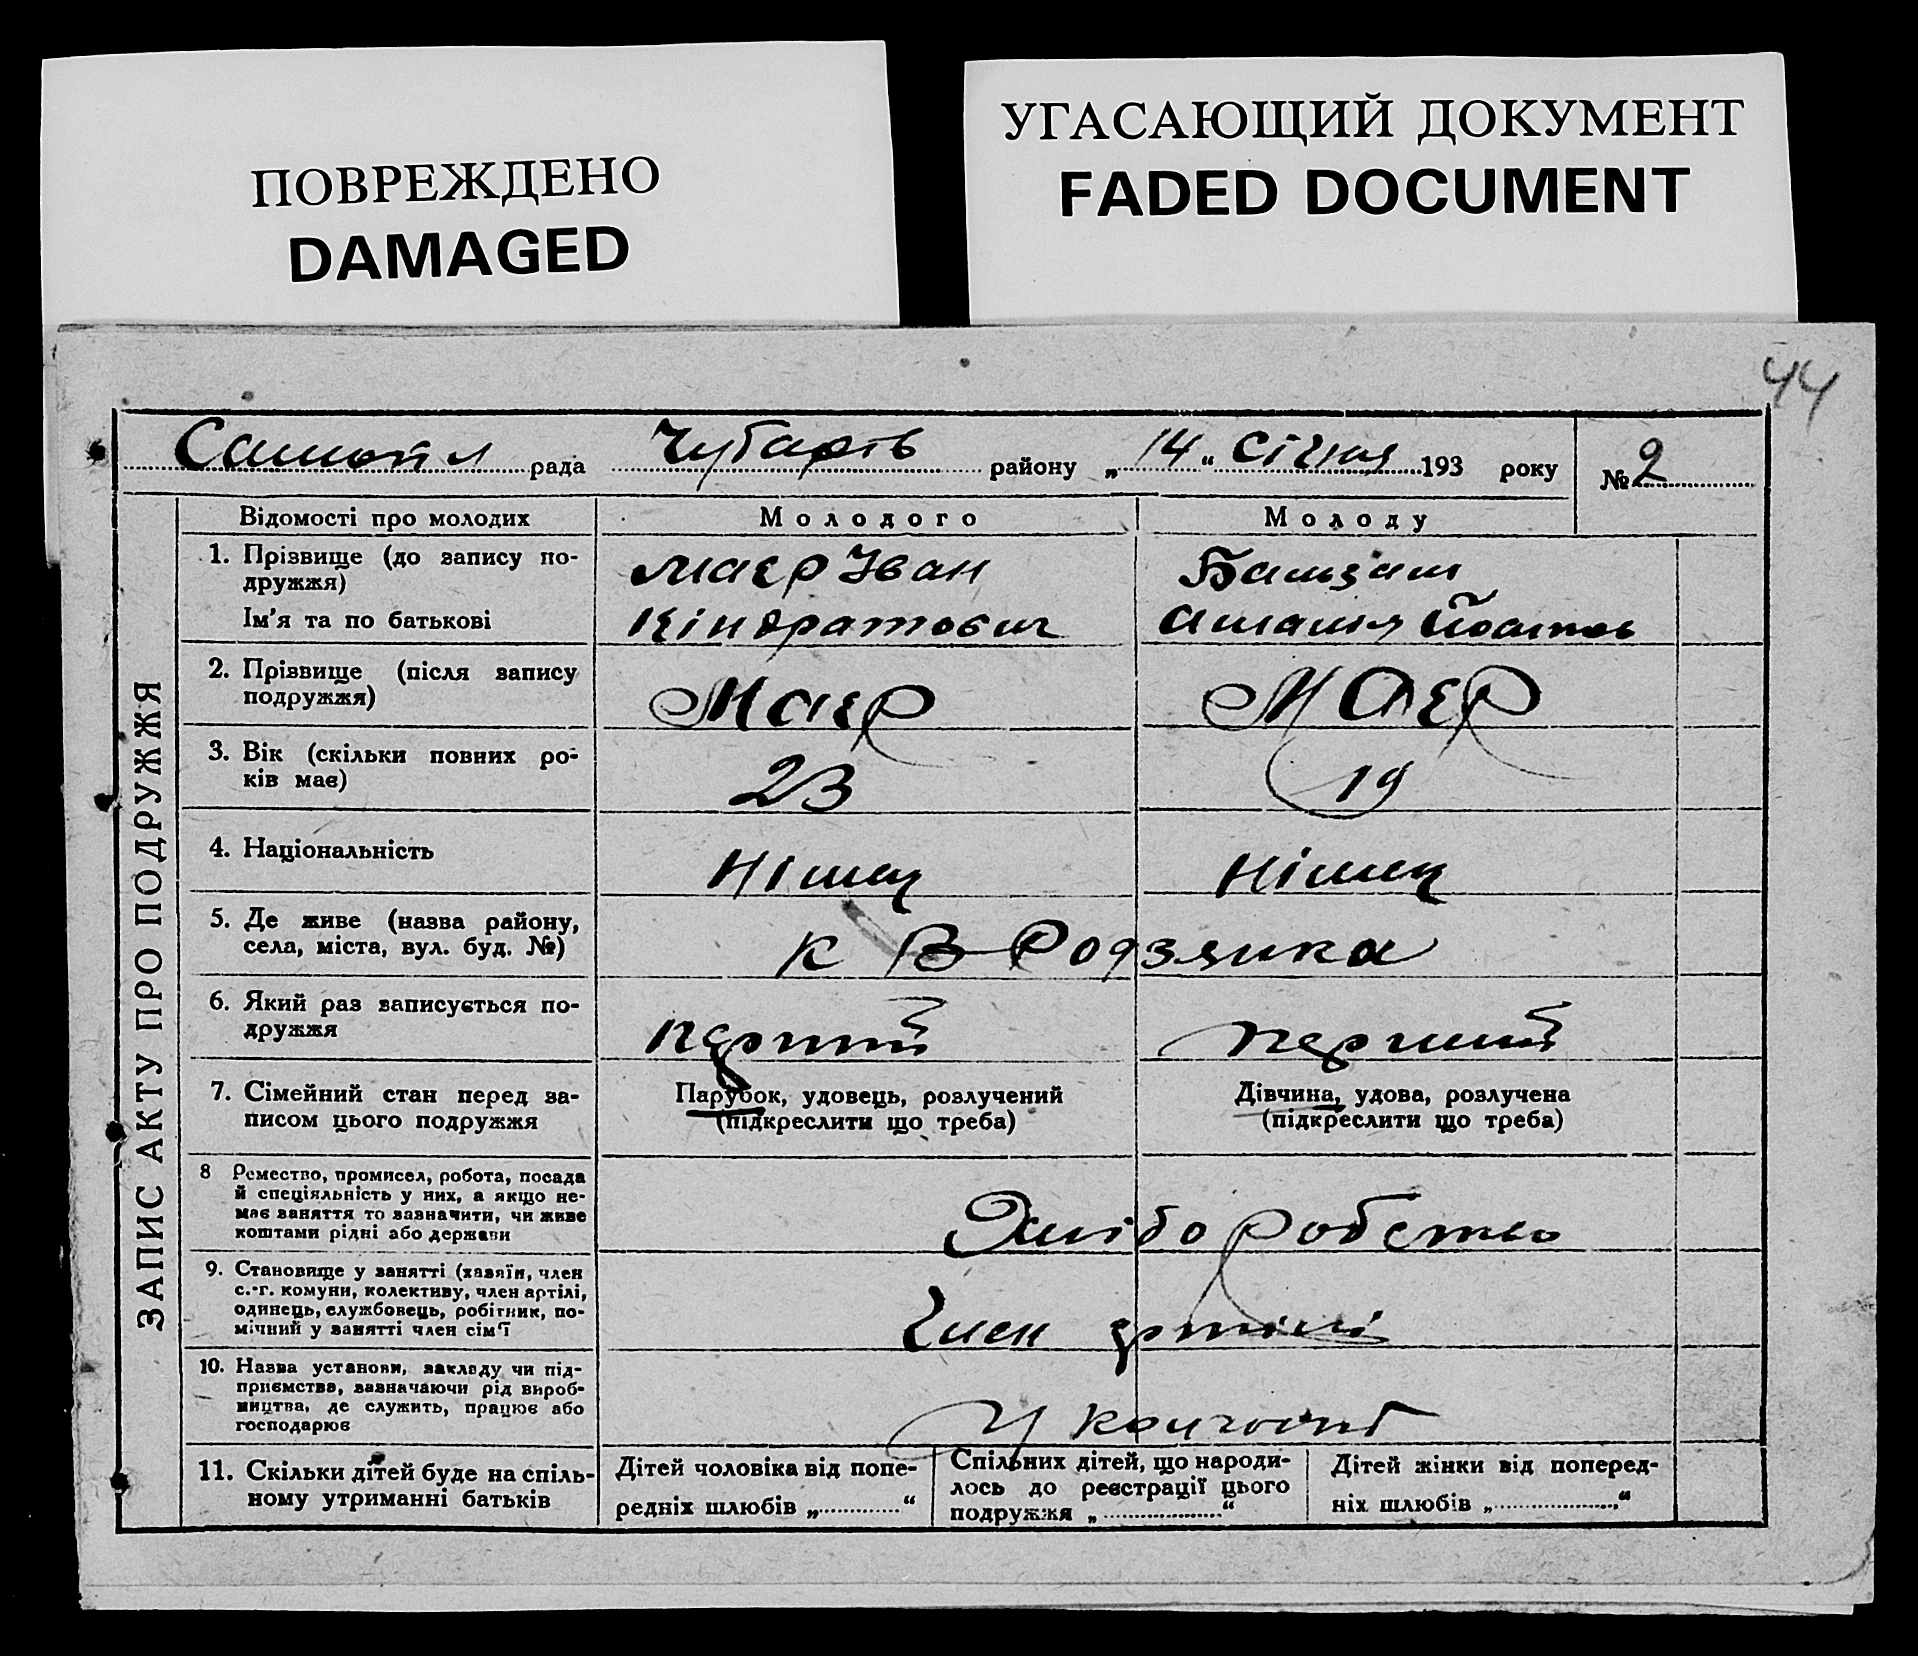 ПОВРЕЖДЕНО
DAMAGED
УГАСАЮЩИЙ ДОКУМЕНТ
FADED DOCUMENT
44
рада Чубарів району „14“ Січня 193 року № 2
ЗАПИС АКТУ ПРО ПОДРУЖЖЯ
Відомості про молодих Молодого Молоду
1. Прізвище (до запису по-
дружжя)
Маєр Іван
Ім'я та по батькові Кіндратович
2. Прізвище (після запису
подружжя)
Маєр МАЄР
3. Вік (скільки повних ро-
ків має)
23 19
4. Національність Німец Німец
5. Де живе (назва району,
села, міста, вул. буд. №)
к В-Родзянка
6. Який раз записується по-
дружжя
перший перший
7. Сімейний стан перед за-
писом цього подружжя
Парубок, удовець, розлучений
(підкреслити що треба)
Дівчина, удова, розлучена
(підкреслити що треба)
8 Ремество, промисел, робота, посада
й спеціяльність у них, а якщо не-
має заняття то зазначити, чи живе
коштами рідні або держави
Хлібо робство
9. Становище у занятті (хазяїн, член
с.-г. комуни, колективу, член артілі,
одинець, службовець, робітник, по-
мічний у занятті член сім'ї
Член артілі
10. Назва установи, закладу чи під-
приємства, зазначаючи рід вироб-
ництва, де служить, працює або
господарює
У колгоспі
11. Скільки дітей буде на спіль-
ному утриманні батьків
Дітей чоловіка від попе-
редніх шлюбів „ “
Спільних дітей, що народи-
лось до реєстрації цього
подружжя „ “
Дітей жінки від поперед-
ніх шлюбів „ “